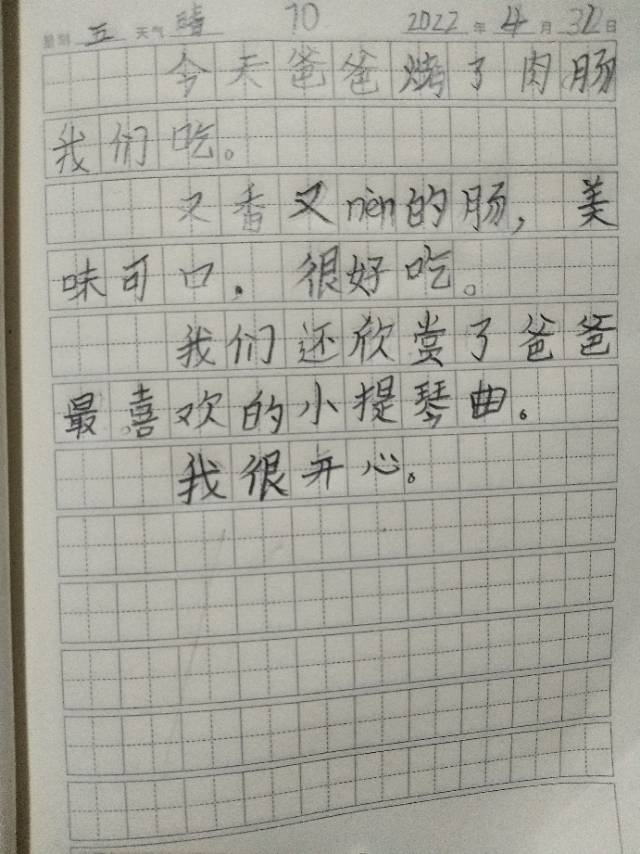 星期 五 天气 晴 10 2022 年 4 月 31 日
今天爸爸烤了肉肠
我们吃。
又香又nèn的肠，美
味可口。很好吃。
我们还欣赏了爸爸
最喜欢的小提琴曲。
我很开心。